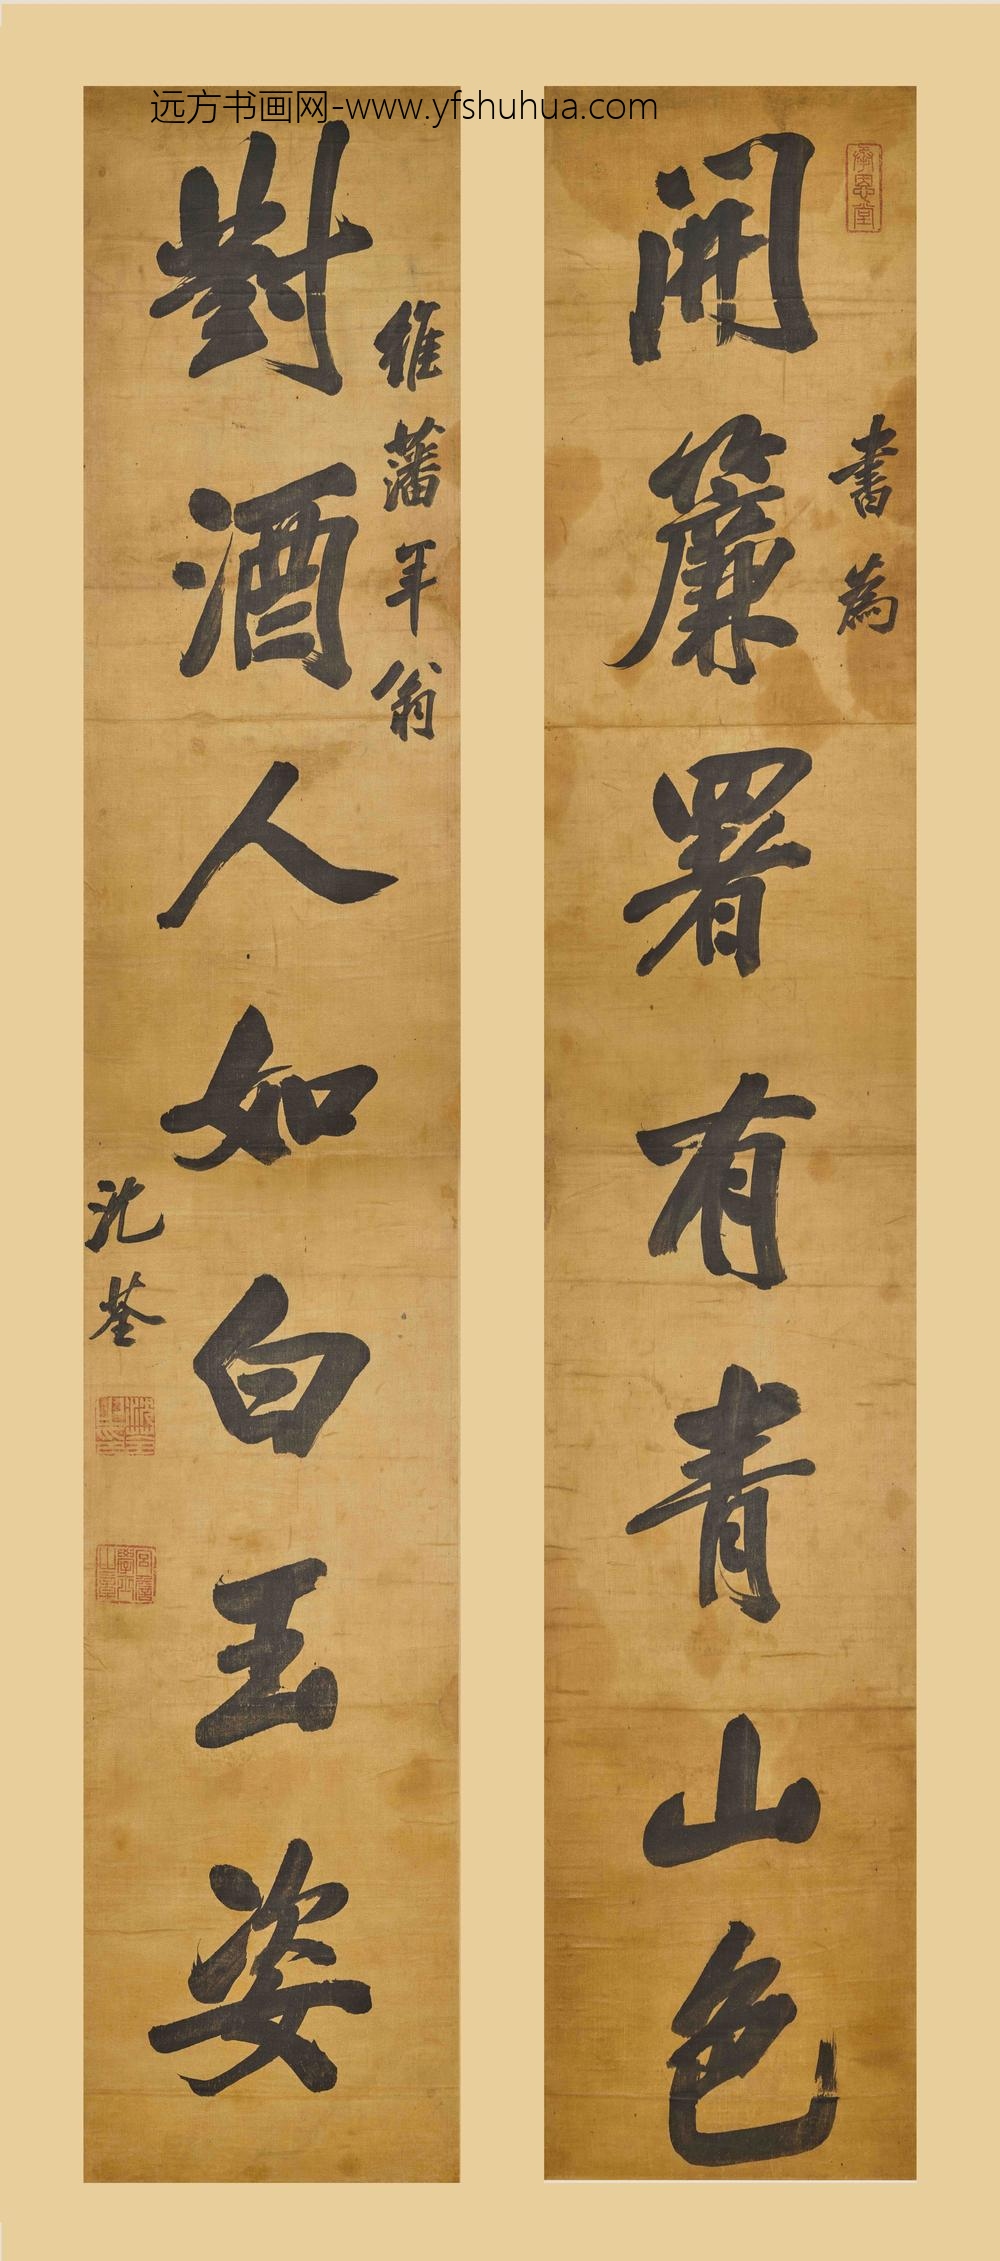 远方书画网-www.yfshuhua.com
承恩堂
書為
開簾署有青山色
維藩年翁
對酒人如白玉姿
沈荃